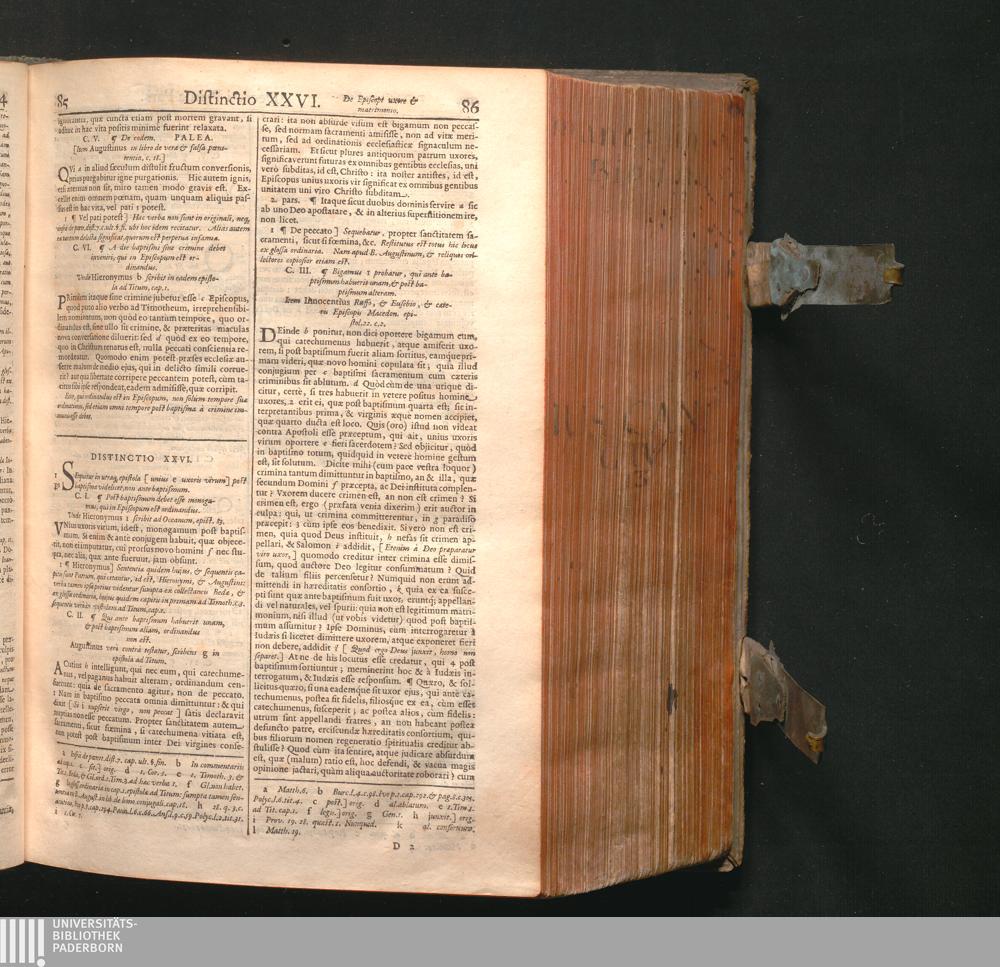 85
Distinctio XXVI.
De Episcopi uxore &
matrimonio.
86
ignorantur, quæ cuncta etiam post mortem gravant, si
adhuc in hac vita positis minimè fuerint relaxata.
C. V. ¶ De eodem. PALEA.
[Item Augustinus in libro de vera & falsa pœni-
tentia, c. 18.]
QVi a in aliud sæculum distulit fructum conversionis,
prius purgabitur igne purgationis. Hic autem ignis,
etsi æternus non sit, miro tamen modo gravis est. Ex-
cellit enim omnem pœnam, quam unquam aliquis pas-
sus est in hac vita, vel pati 1 potest.
1 ¶ Vel pati potest] Hæc verba non sunt in originali, neq;
C. VI. ¶ A die baptismi sine crimine debet
inveniri, qui in Episcopum est or-
dinandus.
Unde Hieronymus b scribit in eadem episto-
la ad Titum, cap. 1.
PRimùm itaque sine crimine jubetur esse c Episcopus,
quod puto alio verbo ad Timotheum, irreprehensibi-
lem nominatum, non quòd eo tantùm tempore, quo or-
dinandus est, sine ullo sit crimine, & præteritas maculas
nova conversatione diluerit: sed d quòd ex eo tempore,
quo in Christum renatus est, nulla peccati conscientia re-
mordeatur. Quomodo enim potest præses ecclesiæ au-
ferre malum de medio ejus, qui in delicto simili corrue-
rit? aut qua libertate corripere peccantem potest, cùm ta-
citus sibi ipse respondeat, eadem admisisse, quæ corripit.
Ecce, qui ordinandus est in Episcopum, non solùm tempore suæ
ordinationis, sed etiam omni tempore post baptisma à crimine im-
munis esse debet.
DISTINCTIO XXVI.
1 SEquitur in utraq; epistola [unius e uxoris virum] post
baptisma videlicet, non ante baptismum.
C. I. ¶ Post baptismum debet esse monoga-
mus, qui in Episcopum est ordinandus.
Unde Hieronymus 1 scribit ad Oceanum, epist. 83.
VNius uxoris virum, idest, monogamum post baptis-
mum. Si enim & ante conjugem habuit, quæ objece-
rit, non ei imputatur, cui prorsus novo homini f nec stu-
pra, nec alia, quæ ante fuerunt, jam obsunt.
1 ¶ Hieronymus] Sententia quidem hujus, & sequentis ca-
pitis sunt Patrum, qui citantur, id est, Hieronymi, & Augustini:
verba tamen ipsa prius videntur sumpta ex collectaneis Bedæ, &
ex glossa ordinaria, hujus quidem capitis in primam ad Timoth. c. 3.
sequentis verò in epistolam ad Titum, cap. 1.
C. II. ¶ Qui ante baptismum habuerit unam,
& post baptismum aliam, ordinandus
non est.
Augustinus verò contrà testatur, scribens g in
epistola ad Titum.
ACutius h intelligunt, qui nec eum, qui catechume-
nus, vel paganus habuit alteram, ordinandum cen-
suerunt: quia de sacramento agitur, non de peccato.
1 Nam in baptismo peccata omnia dimittuntur: & qui
dixit [si i nupserit virgo, non peccat] satis declaravit
nuptias non esse peccatum. Propter sanctitatem autem
sacramenti, sicut fœmina, si catechumena vitiata est,
non potest post baptismum inter Dei virgines conse-
crari: ita non absurdè visum est bigamum non peccas-
se, sed normam sacramenti amisisse, non ad vitæ meri-
tum, sed ad ordinationis ecclesiasticæ signaculum ne-
cessariam. Et sicut plures antiquorum patrum uxores,
significaverunt futuras ex omnibus gentibus ecclesias, uni
verò subditas, id est, Christo: ita noster antistes, id est,
Episcopus unius uxoris vir significat ex omnibus gentibus
unitatem uni viro Christo subditam.
2. pars. ¶ Itaque sicut duobus dominis servire a sic
ab uno Deo apostatare, & in alterius superstitionem ire,
non licet.
1 ¶ De peccato] Sequebatur, propter sanctitatem sa-
cramenti, sicut si fœmina, &c. Restitutus est totus hic locus
ex glossa ordinaria. Nam apud B. Augustinum, & reliquos col-
lectores copiosior etiam est.
C. III. ¶ Bigamus 1 probatur, qui ante ba-
ptismum habuerit unam, & post ba-
ptismum alteram.
Item Innocentius Ruffo, & Eusebio, & cæte-
ris Episcopis Macedon. epi-
stol. 22. c. 2.
DEinde b ponitur, non dici oportere bigamum eum,
qui catechumenus habuerit, atque amiserit uxo-
rem, si post baptismum fuerit aliam sortitus, eamque pri-
mam videri, quæ novo homini copulata sit; quia illud
conjugium per c baptismi sacramentum cum cæteris
criminibus sit ablutum. d Quòd cùm de una utique di-
citur, certè, si tres habuerit in vetere positus homine
uxores, 2 erit ei, quæ post baptismum quarta est; sic in-
terpretantibus prima, & virginis æque nomen accipiet,
quæ quarto ducta est loco. Quis (oro) istud non videat
contra Apostoli esse præceptum, qui ait, unius uxoris
virum oportere e fieri sacerdotem? Sed objicitur, quòd
in baptismo totum, quidquid in vetere homine gestum
est, sit solutum. Dicite mihi (cum pace vestra loquor)
crimina tantùm dimittuntur in baptismo, an & illa, quæ
secundum Domini f præcepta, ac Dei instituta complen-
tur? Vxorem ducere crimen est, an non est crimen? Si
crimen est, ergo (præfata venia dixerim) erit auctor in
culpa: qui, ut crimina committerentur, in g paradiso
præcepit: 3 cùm ipse eos benedixit. Si verò non est cri-
men, quia quod Deus instituit, h nefas sit crimen ap-
pellari, & Salomon i addidit, [Etenim à Deo præparatur
viro uxor,] quomodo creditur inter crimina esse dimis-
sum, quod auctore Deo legitur consummatum? Quid
de talium filiis percensetur? Numquid non erunt ad-
mittendi in hæreditatis consortio, k quia ex ea susce-
pti sunt quæ ante baptismum fuit uxor, eruntq; appellan-
di vel naturales, vel spurii: quia non est legitimum matri-
monium, nisi illud (ut vobis videtur) quod post baptis-
mum assumitur? Ipse Dominus, cùm interrogaretur à
Iudæis si liceret dimittere uxorem, atque exponeret fieri
non debere, addidit l [Quod ergo Deus junxit, homo non
separet.] At ne de his locutus esse credatur, qui 4 post
baptismum sortiuntur; meminerint hoc & à Iudæis in-
terrogatum, & Iudæis esse responsum. ¶ Quæro, & sol-
licitus quæro, si una eademque sit uxor ejus, qui antè ca-
techumenus, postea sit fidelis, filiosque ex ea, cùm esset
catechumenus, susceperit; ac postea alios, cùm fidelis:
utrùm sint appellandi fratres, an non habeant postea
defuncto patre, erciscundæ hæreditatis consortium, qui-
bus filiorum nomen regeneratio spiritualis creditur ab-
stulisse? Quod cùm ita sentire, atque judicare absurdum
est, quæ (malum) ratio est, hoc defendi, & vacua magis
opinione jactari, quàm aliqua auctoritate roborari? cum
a Matth. 6. b Burc. l. 4. c. 98. Ivo p. 1. cap. 292. & pag. 8. c. 305.
Polyc. l. 6. tit. 4. c post.] orig. d al. ablatum. e 1. Tim. 3.
ad Tit. cap. 1. f legis.] orig. g Gen. 1. h junxit.] orig.
i Prov. 19. 28. quæst. 1. Numquid. k al. consortium.
l Matth. 19.
D 2
UNIVERSITÄTS-
BIBLIOTHEK
PADERBORN